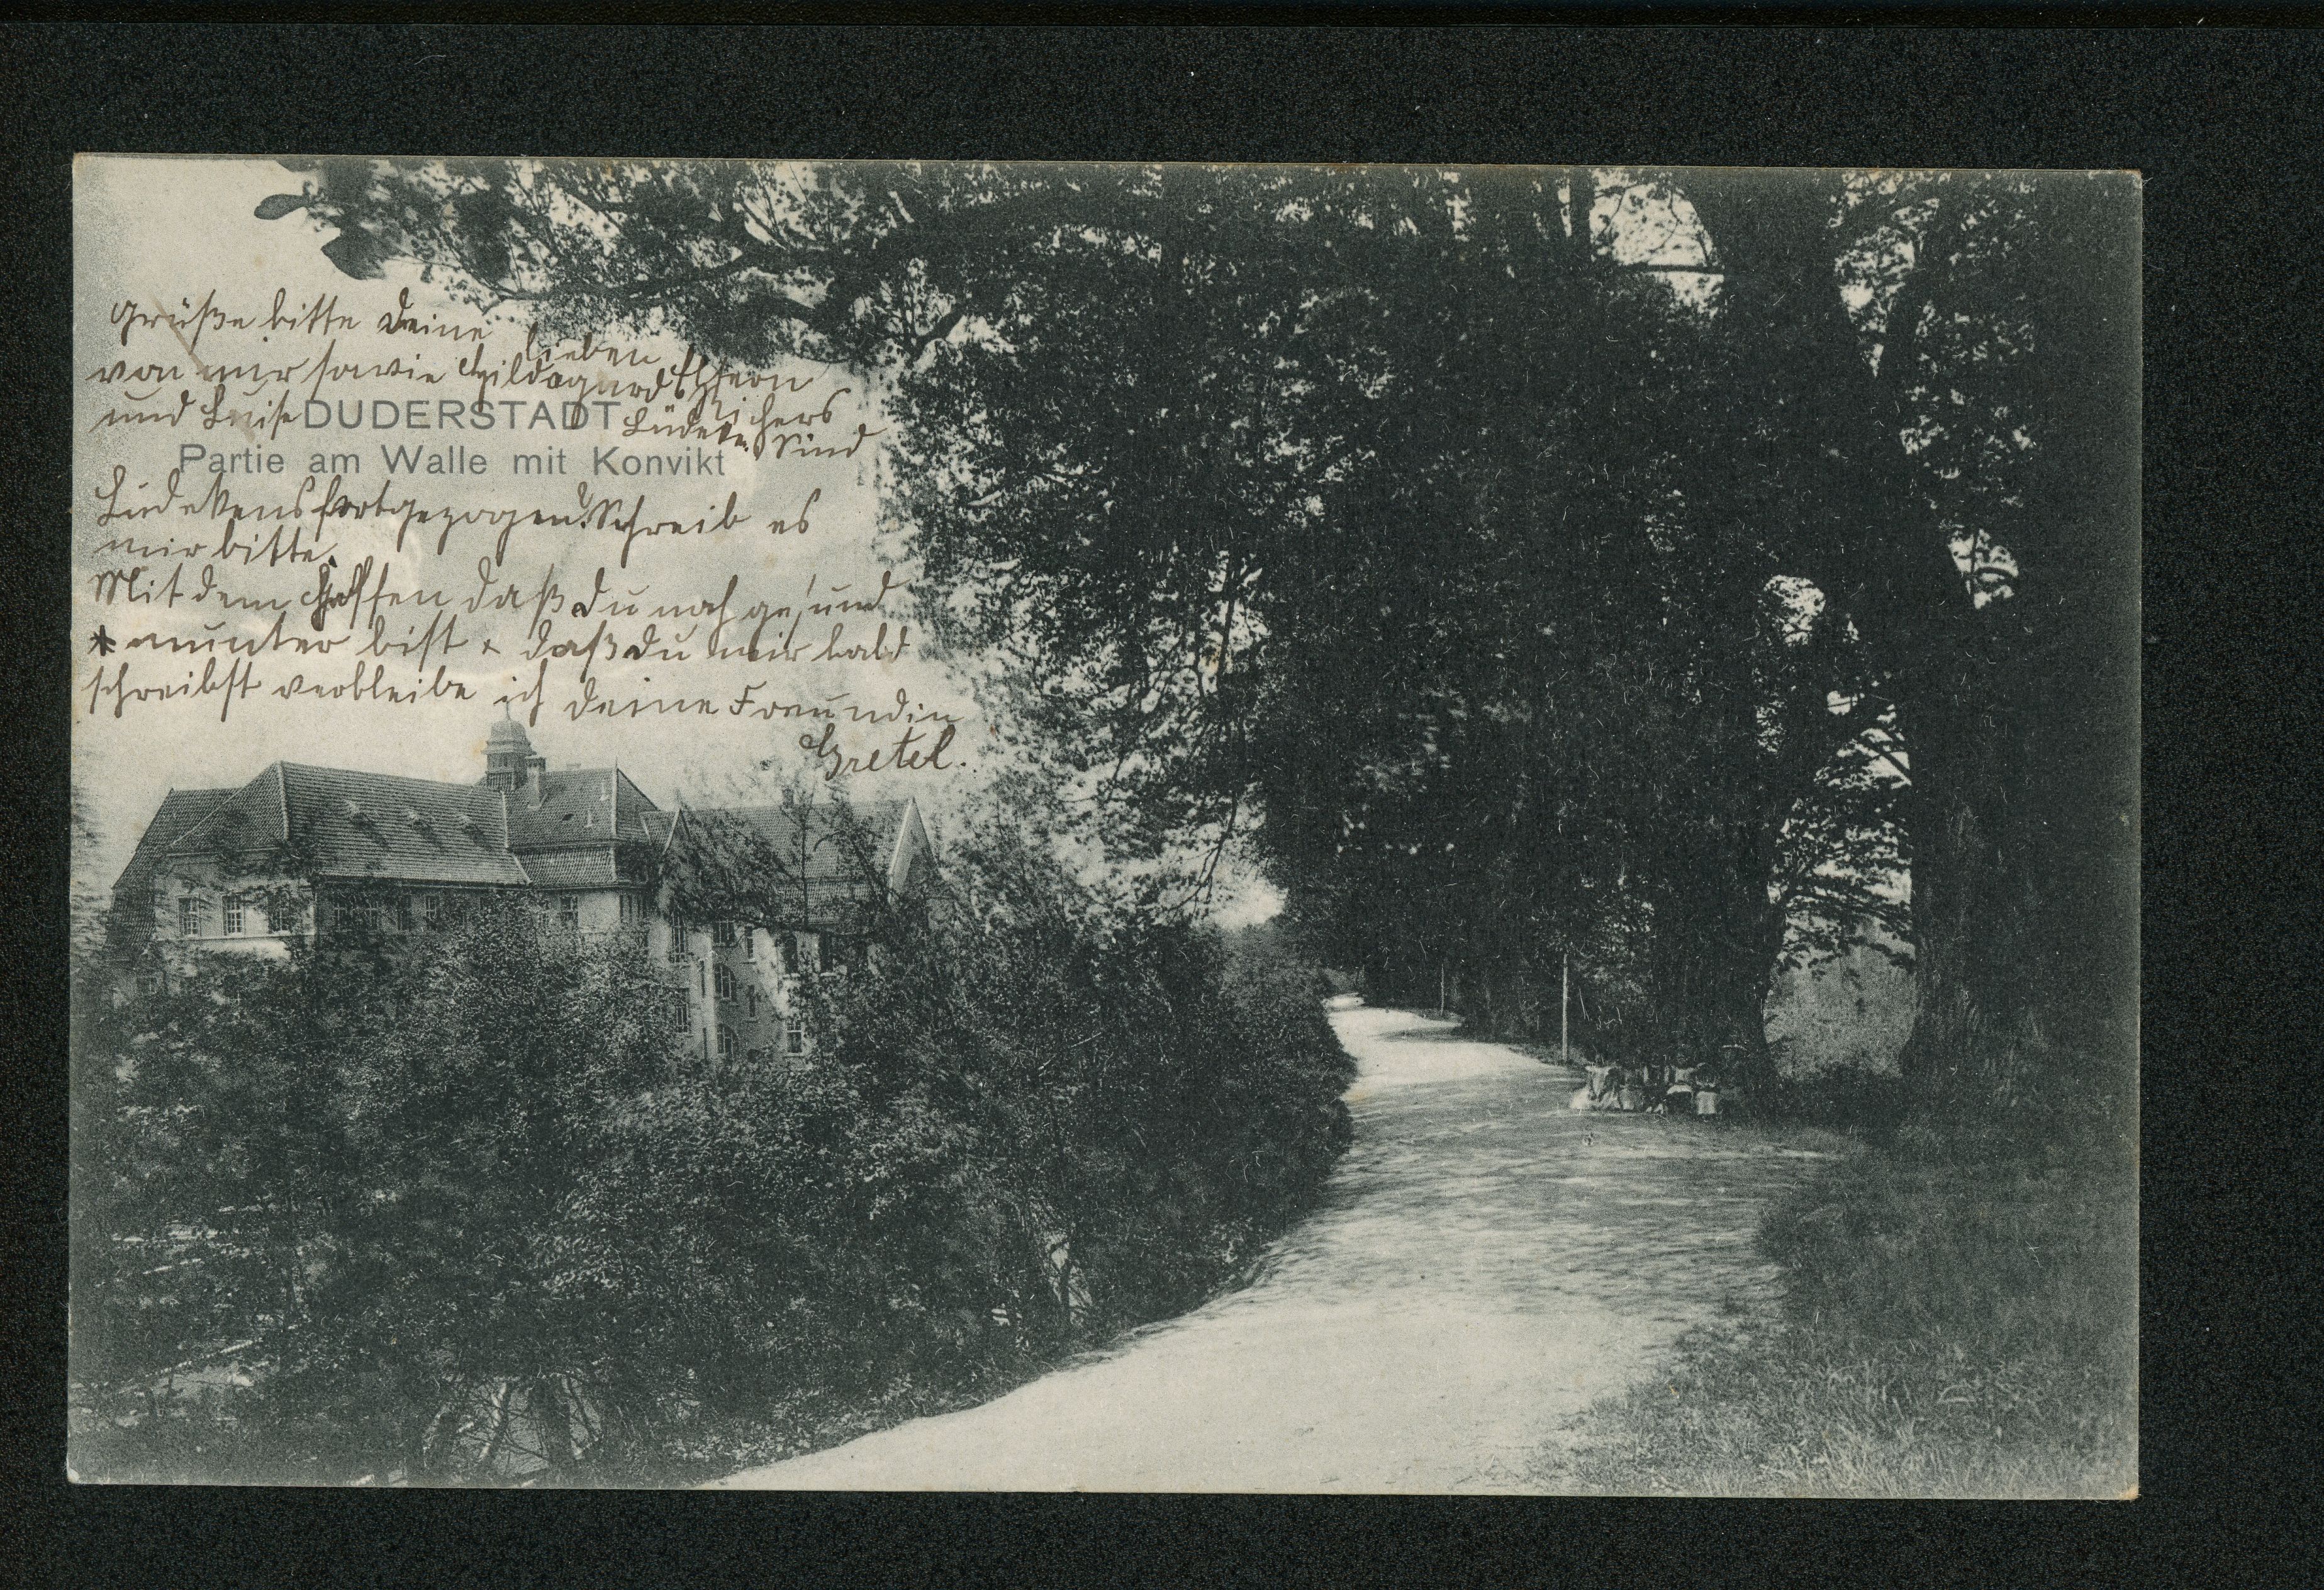 Grüße bitte Deine lieben Eltern
von mir sowie Hildegard Richers
und Luise Lüdeke. Sind
DUDERSTADT
Partie am Walle mit Konvikt
Lüdekens fortgezogen? Schreib es
mir bitte.
Mit dem Hoffen daß Du noch gesund
munter bist & daß Du mir bald
schreibst verbleibe ich Deine Freundin
Gretel.